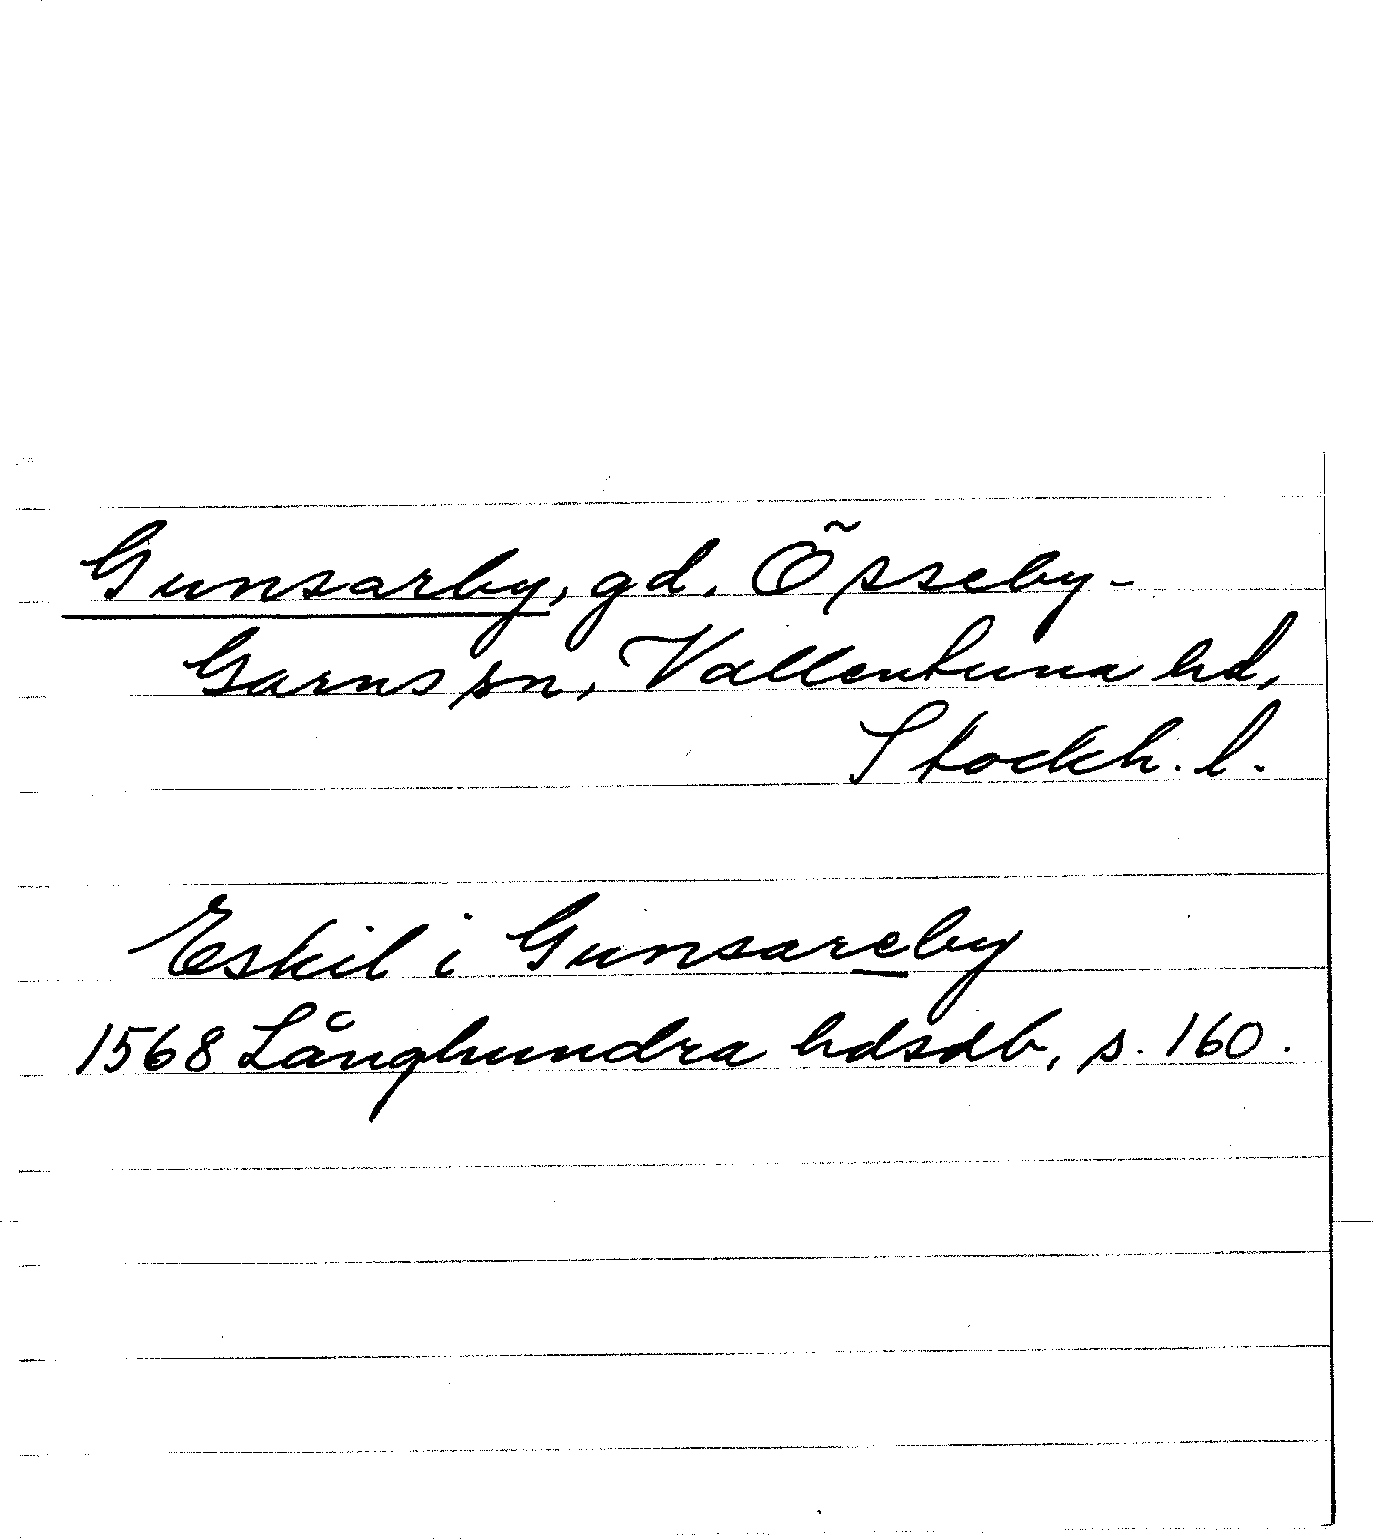 Gunsarby, gd, Össeby-
Garns sn, Vallentuna hd,
Stockh. l.
Eskil i Gunsareby
1568 Långhundra hdsdb, s. 160.